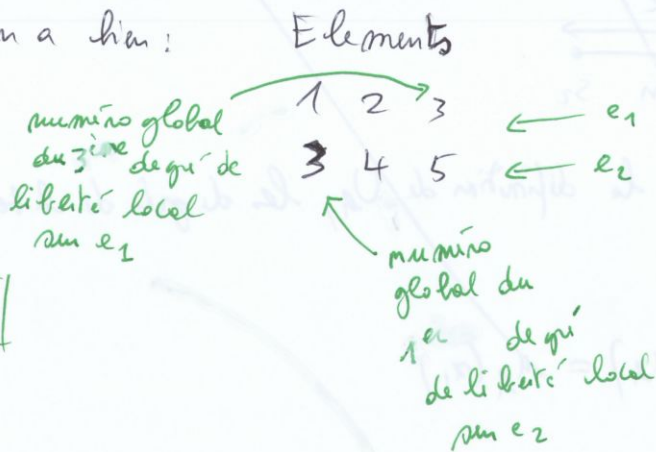 n a bien :
Elements
1 2 3 ← e1
3 4 5 ← e2
numéro global
du 3ème degré de
liberté local
sur e1
numéro
global du
1er degré
de liberté local
sur e2